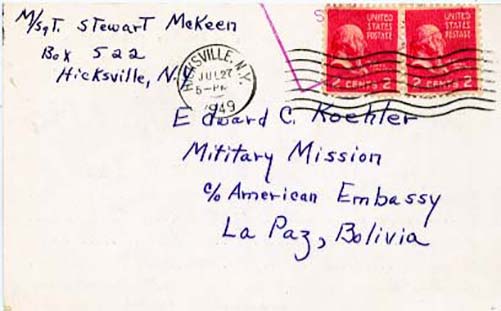 M/Sgt. Stewart McKeen
Box 522
Hicksville, N.Y.
HICKSVILLE, N.Y.
JUL 27
5-PM
1949
UNITED STATES POSTAGE
2 CENTS 2
UNITED STATES POSTAGE
2 CENTS 2
Edward C. Koehler
Military Mission
c/o American Embassy
La Paz, Bolivia